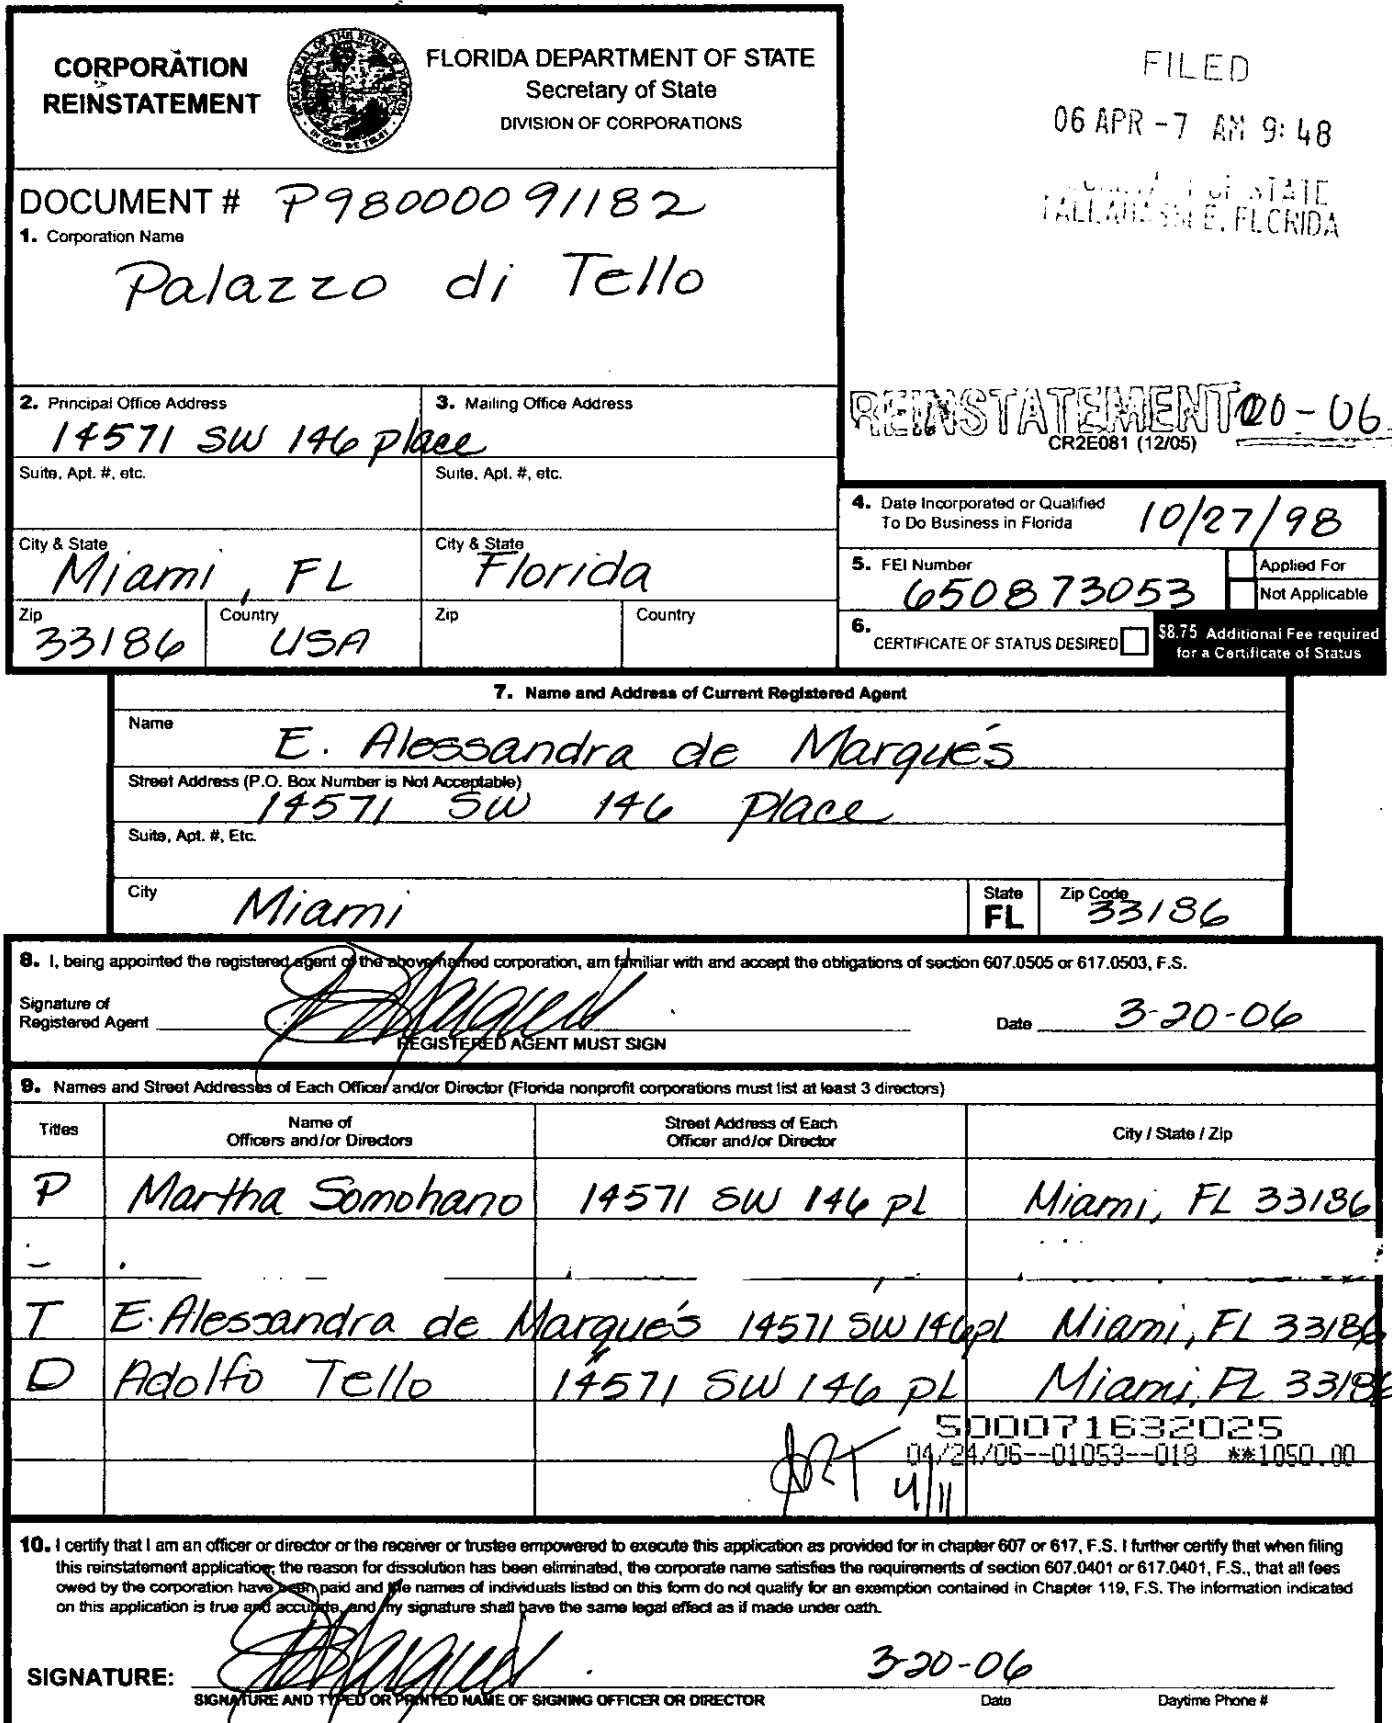 CORPORATION
REINSTATEMENT
FLORIDA DEPARTMENT OF STATE
Secretary of State
DIVISION OF CORPORATIONS
FILED
06 APR -7 AM 9:48
OF STATE
TALLAHASSEE, FLORIDA
DOCUMENT # P98000091182
1. Corporation Name
Palazzo di Tello
REINSTATEMENT 00-06
CR2E081 (12/05)
2. Principal Office Address
14571 SW 146 place
3. Mailing Office Address
Suite, Apt. #, etc.
Suite, Apt. #, etc.
City & State
Miami, FL
City & State
Florida
Zip
33186
Country
USA
Zip
Country
4. Date Incorporated or Qualified
To Do Business in Florida
10/27/98
5. FEI Number
650873053
Applied For
Not Applicable
6. CERTIFICATE OF STATUS DESIRED
$8.75 Additional Fee required
for a Certificate of Status
7. Name and Address of Current Registered Agent
Name
E. Alessandra de Marqués
Street Address (P.O. Box Number is Not Acceptable)
14571 SW 146 place
Suite, Apt. #, Etc.
City
Miami
State
FL
Zip Code
33186
8. I, being appointed the registered agent of the above named corporation, am familiar with and accept the obligations of section 607.0505 or 617.0503, F.S.
Signature of
Registered Agent
REGISTERED AGENT MUST SIGN
Date 3-20-06
9. Names and Street Addresses of Each Officer and/or Director (Florida nonprofit corporations must list at least 3 directors)
Titles
Name of
Officers and/or Directors
Street Address of Each
Officer and/or Director
City / State / Zip
P Martha Somohano 14571 SW 146 pl Miami, FL 33186
T E. Alessandra de Marqués 14571 SW 146 pl Miami, FL 33186
D Adolfo Tello 14571 SW 146 pl Miami, FL 33186
500071632025
04/24/06--01053--018 **1050.00
4/11
10. I certify that I am an officer or director or the receiver or trustee empowered to execute this application as provided for in chapter 607 or 617, F.S. I further certify that when filing
this reinstatement application, the reason for dissolution has been eliminated, the corporate name satisfies the requirements of section 607.0401 or 617.0401, F.S., that all fees
owed by the corporation have been paid and the names of individuals listed on this form do not qualify for an exemption contained in Chapter 119, F.S. The information indicated
on this application is true and accurate, and my signature shall have the same legal effect as if made under oath.
SIGNATURE:
3-20-06
SIGNATURE AND TYPED OR PRINTED NAME OF SIGNING OFFICER OR DIRECTOR
Date
Daytime Phone #